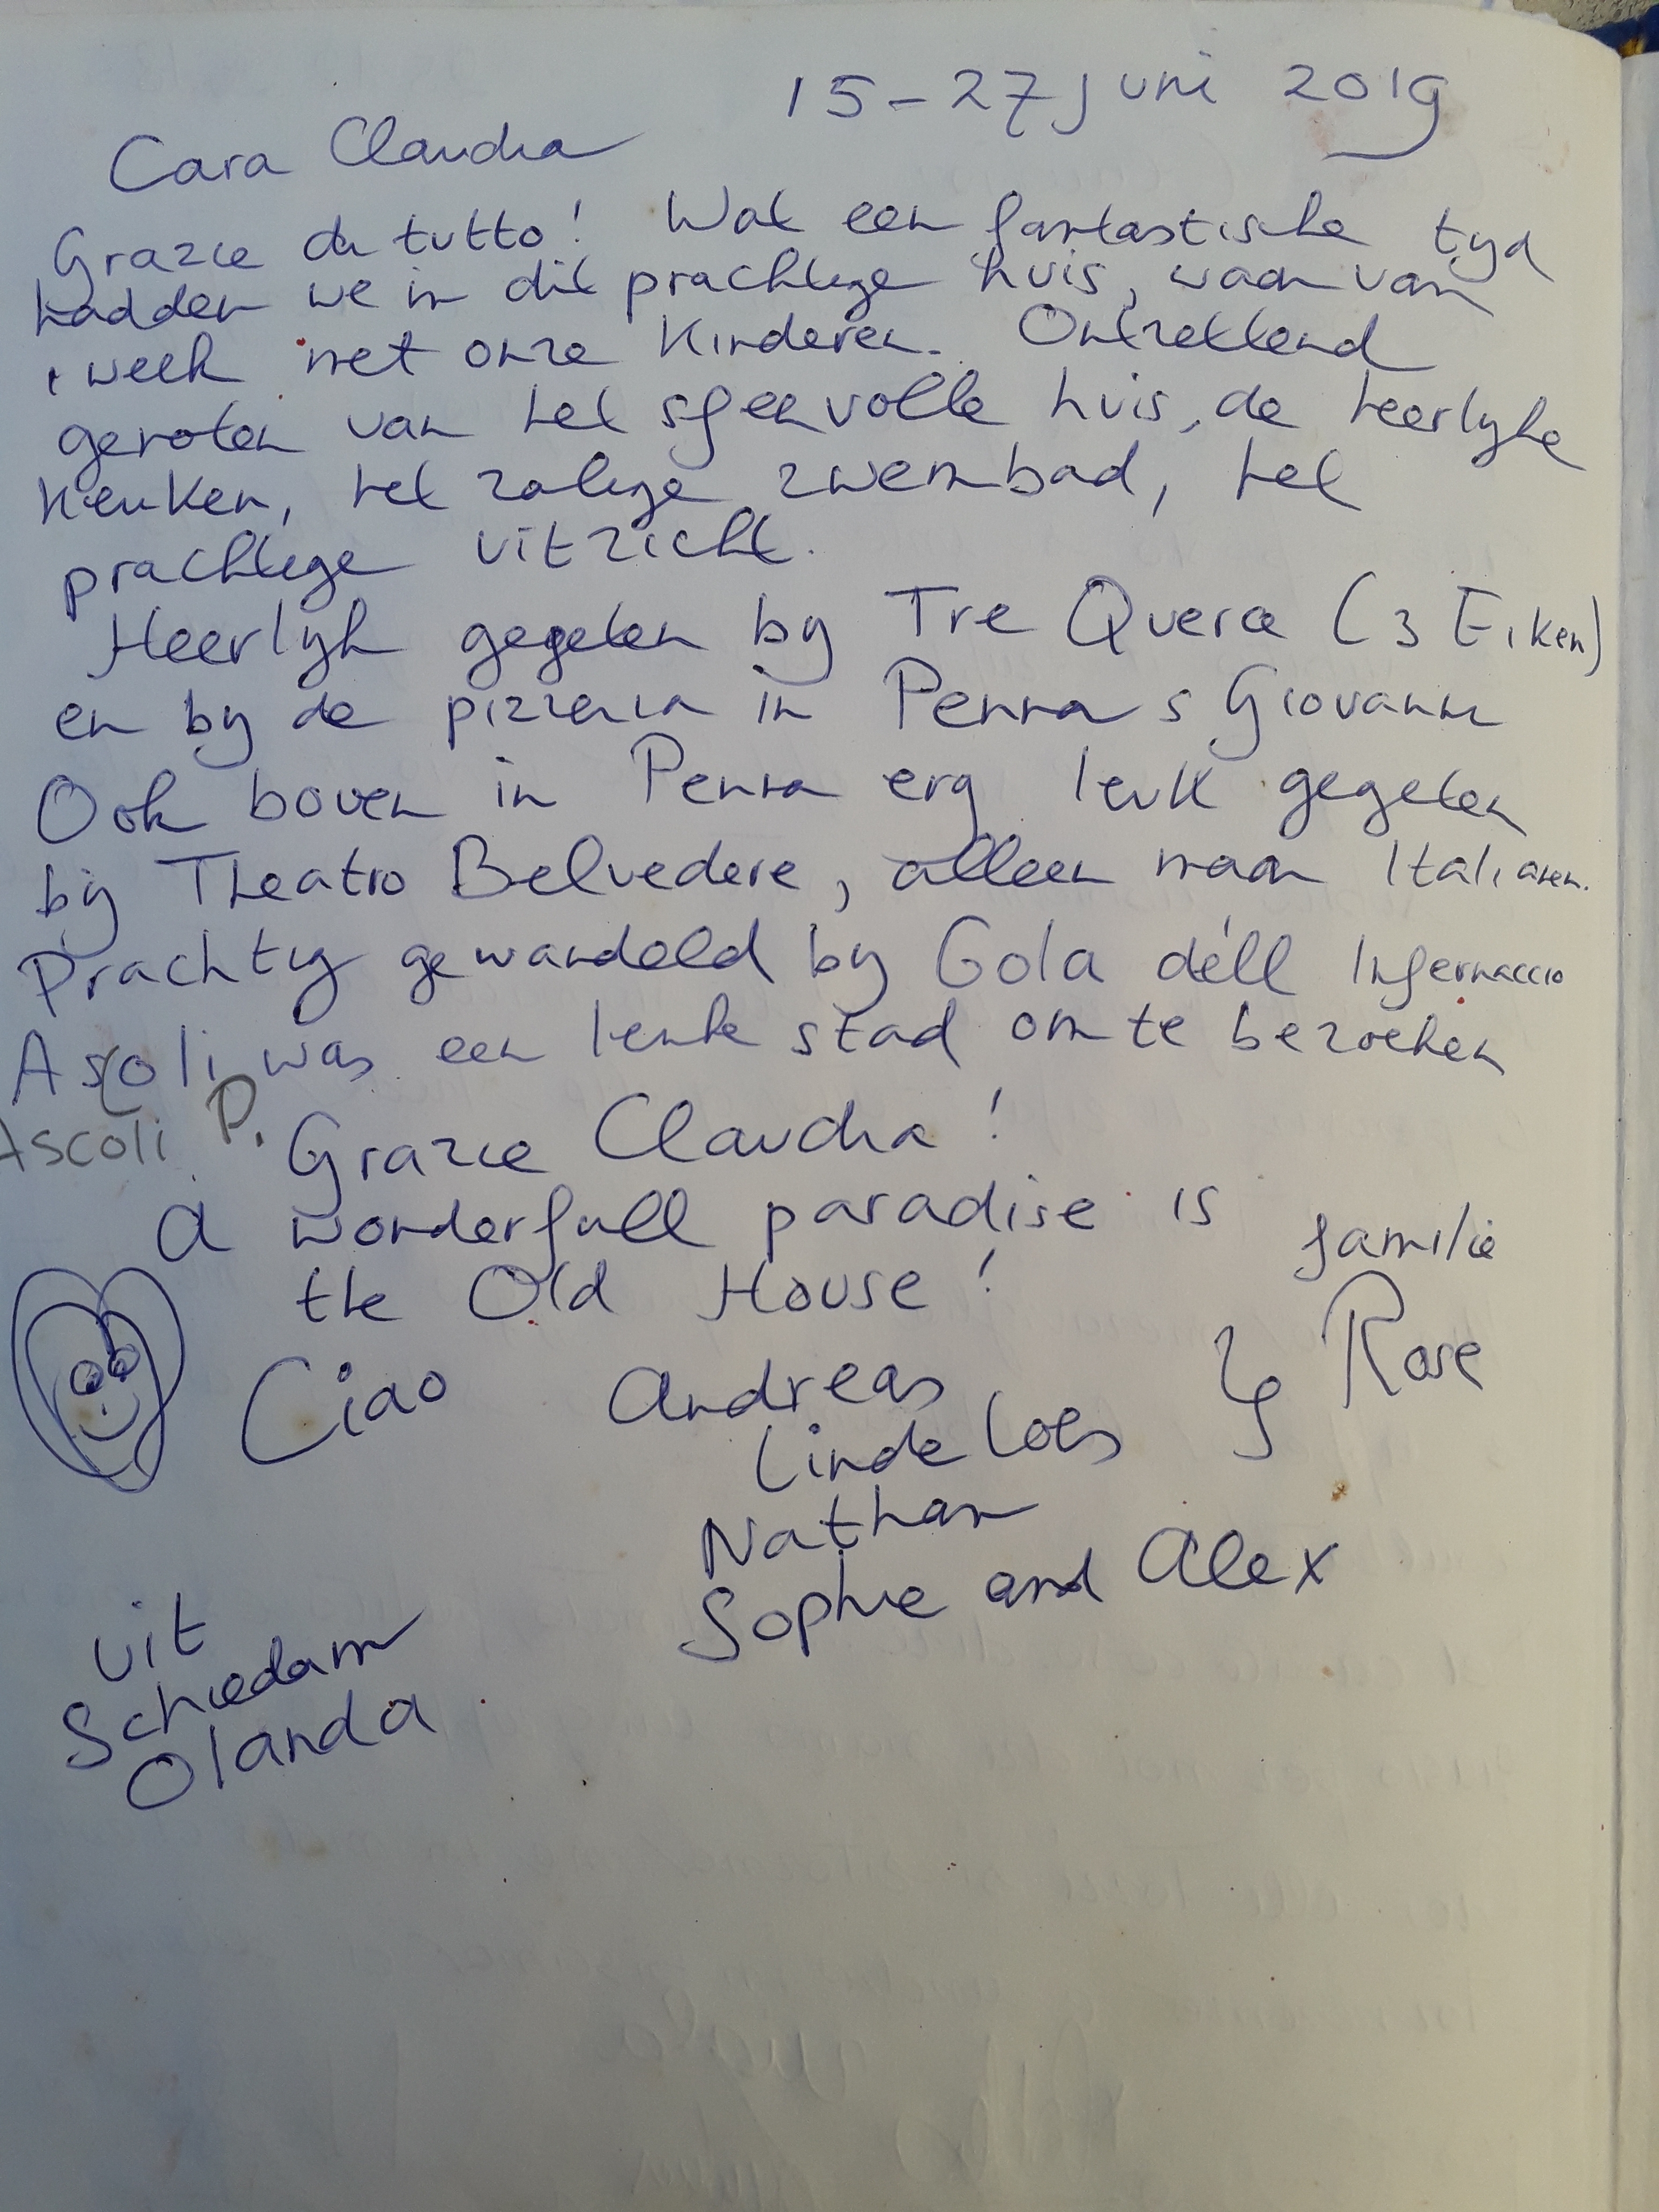 15-27 juni 2019
Cara Claudia
Grazie di tutto! Wat een fantastische tijd
hadden we in dit prachtige huis, waarvan
1 week met onze kinderen. Ontzettend
genoten van het sfeervolle huis, de heerlijke
keuken, het zalige zwembad, het
prachtige uitzicht.
Heerlijk gegeten bij Tre Querce (3 Eiken)
en bij de pizzeria in Penna s Giovanni
Ook boven in Penna erg leuk gegeten
bij Theatro Belvedere, alleen maar Italianen.
Prachtig gewandeld bij Gola dell Infernaccio
Ascoli was een leuke stad om te bezoeken
Ascoli P.
Grazie Claudia!
A wonderfull paradise is
the Old House!
familie
Rose
Ciao Andreas
Linde Loes
Nathan
Sophie and Alex
uit
Schiedam
Olanda